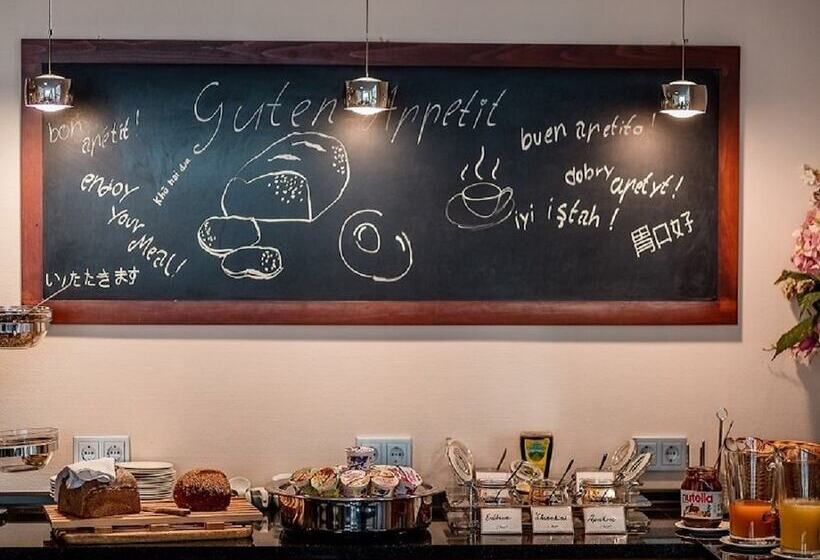 Guten Appetit
bon
apétit!
enjoy
your
Meal!
いただきます
buen apetito!
dobry
apetyt!
iyi iştah!
胃口好
nutella
Erdbeere
Aprikose